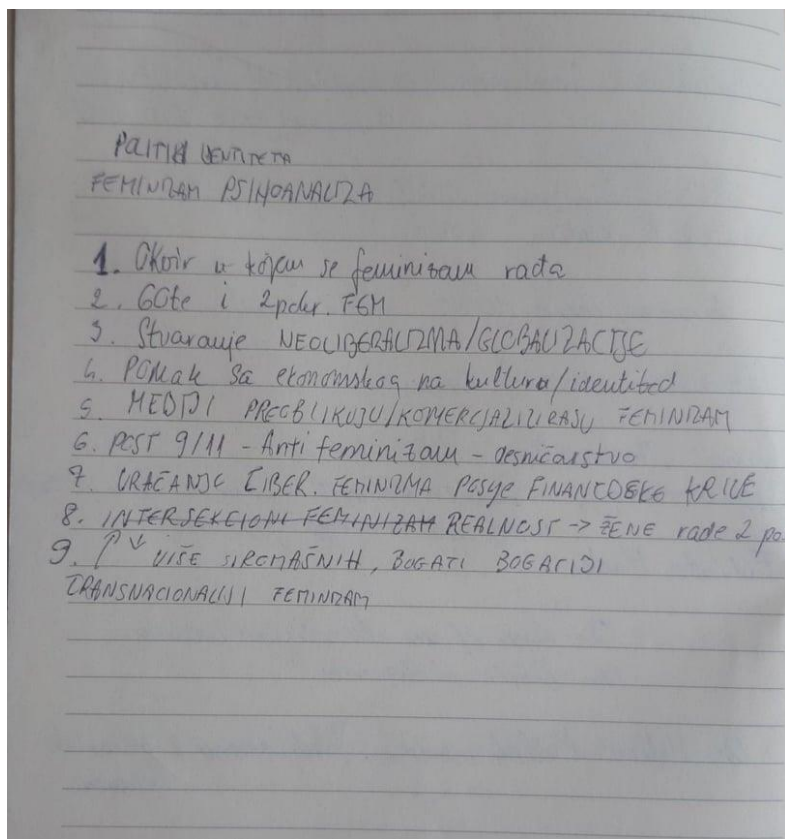 POLITIKA IDENTITETA
FEMINIZAM PSIHOANALIZA
1. Okvir u kojem se feminizam rađa
2. 60te i 2 FEM
3. Stvaranje NEOLIBERALIZMA/GLOBALIZACIJE
4. POMAK sa ekonomskog na kultura/identitet
5. MEDIJI PREOBLIKUJU/KOMERCIJALIZIRAJU FEMINIZAM
6. POST 9/11 - Anti feminizam - desničarstvo
7. VRAĆANJE LIBER. FEMINIZMA POSLJE FINANCIJSKE KRIZE
8. INTERSEKCIONI FEMINIZAM REALNOST → ŽENE rade 2 po.
9. ↑ ↓ VIŠE SIROMAŠNIH, BOGATI BOGATIJI
TRANSNACIONALNI FEMINIZAM